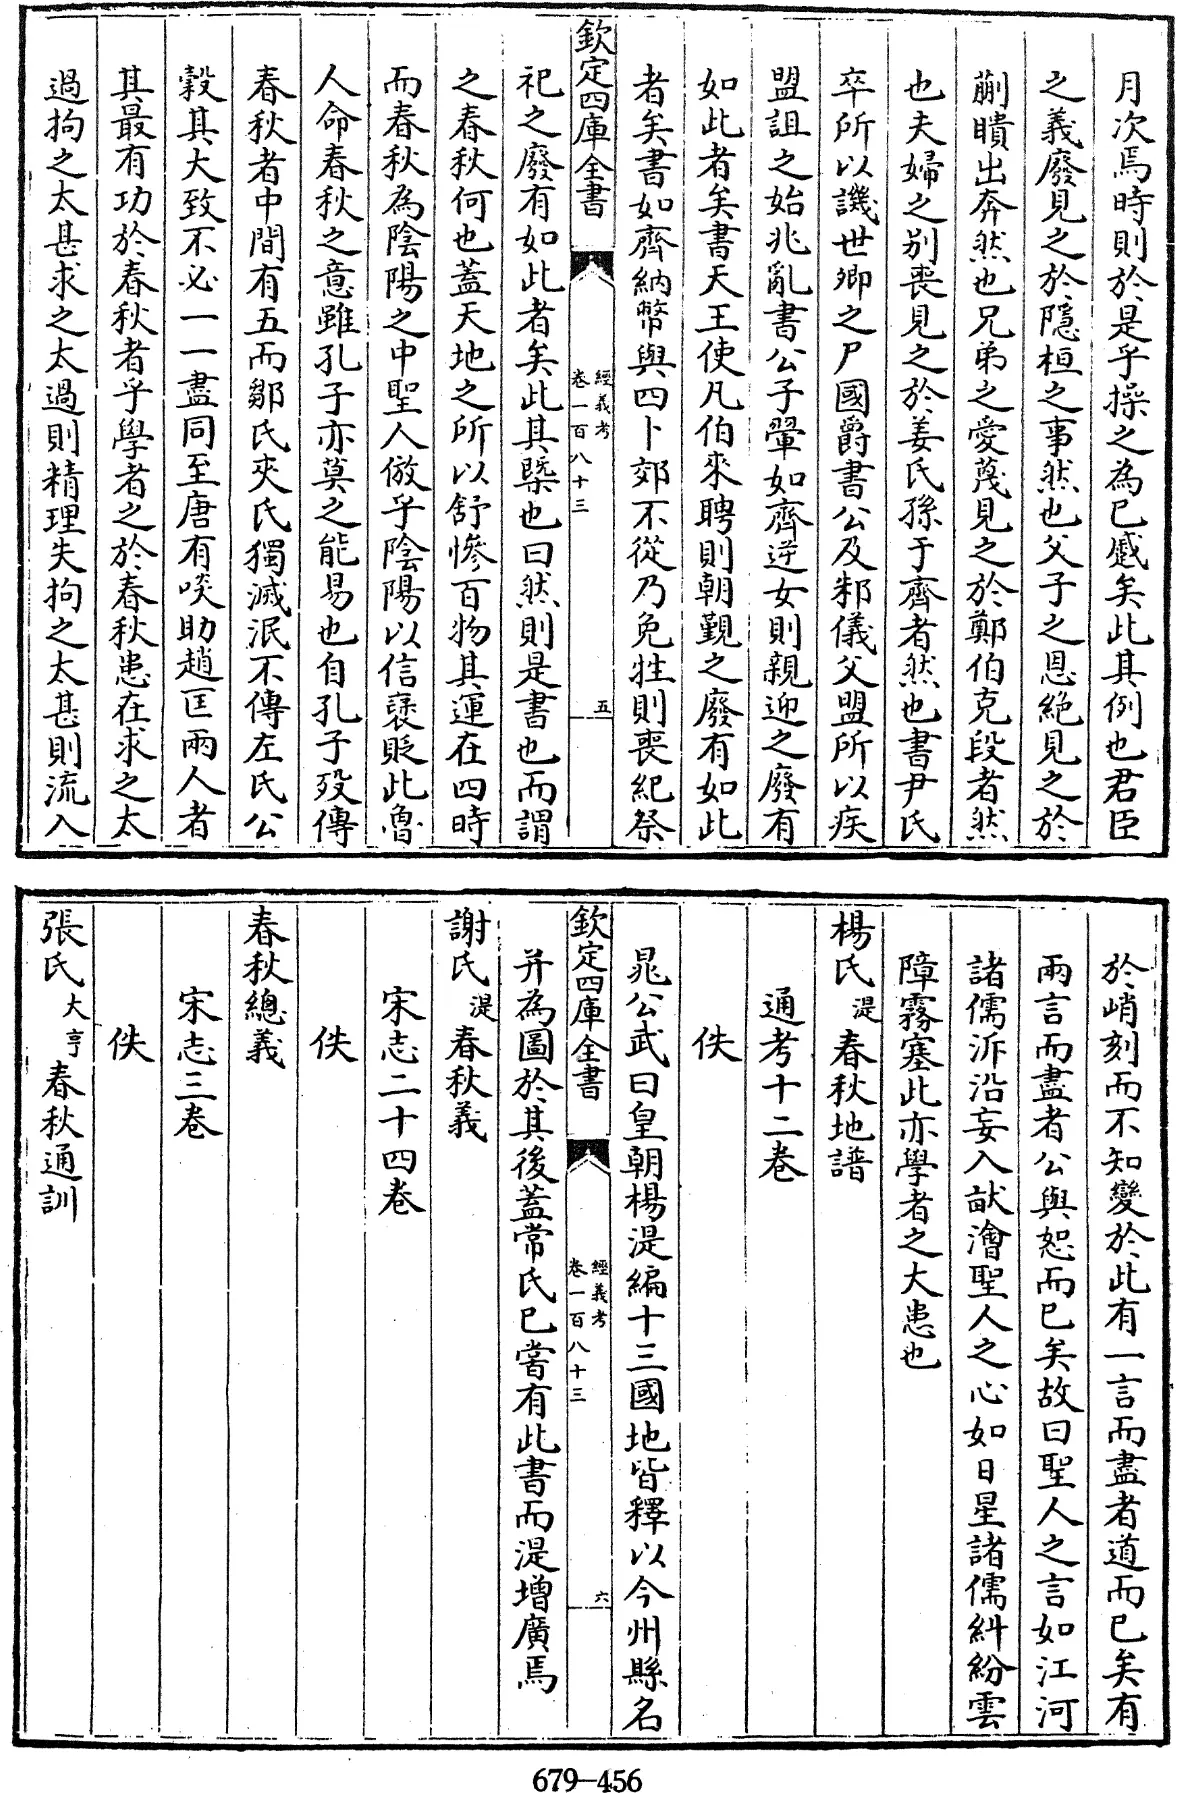 月次焉時則於是乎操之為已蹙矣此其例也君臣
之義廢見之於隱桓之事然也父子之恩絶見之於
蒯聵出奔然也兄弟之愛蔑見之於鄭伯克段者然
也夫婦之别喪見之於姜氏孫于齊者然也書尹氏
卒所以譏世卿之尸國爵書公及邾儀父盟所以疾
盟詛之始兆亂書公子翬如齊逆女則親迎之廢有
如此者矣書天王使凡伯來聘則朝覲之廢有如此
者矣書如齊納幣與四卜郊不從乃免牲則喪紀祭
欽定四庫全書
經義考
卷一百八十三
五
祀之廢有如此者矣此其槩也曰然則是書也而謂
之春秋何也蓋天地之所以舒慘百物其運在四時
而春秋為陰陽之中聖人倣乎陰陽以信褒貶此魯
人命春秋之意雖孔子亦莫之能易也自孔子殁傳
春秋者中間有五而鄒氏夾氏獨滅泯不傳左氏公
穀其大致不必一一盡同至唐有啖助趙匡兩人者
其最有功於春秋者乎學者之於春秋患在求之太
過拘之太甚求之太過則精理失拘之太甚則流入
於峭刻而不知變於此有一言而盡者道而已矣有
兩言而盡者公與恕而已矣故曰聖人之言如江河
諸儒泝沿妄入畎澮聖人之心如日星諸儒糾紛雲
障霧塞此亦學者之大患也
楊氏湜春秋地譜
通考十二卷
佚
晁公武曰皇朝楊湜編十三國地皆釋以今州縣名
欽定四庫全書
經義考
卷一百八十三
六
并為圖於其後蓋常氏已嘗有此書而湜增廣焉
謝氏湜春秋義
宋志二十四卷
佚
春秋總義
宋志三卷
佚
張氏大亨春秋通訓
679—456